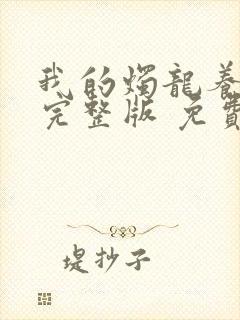 我的燭龍養
完整版 免費
堤抄子